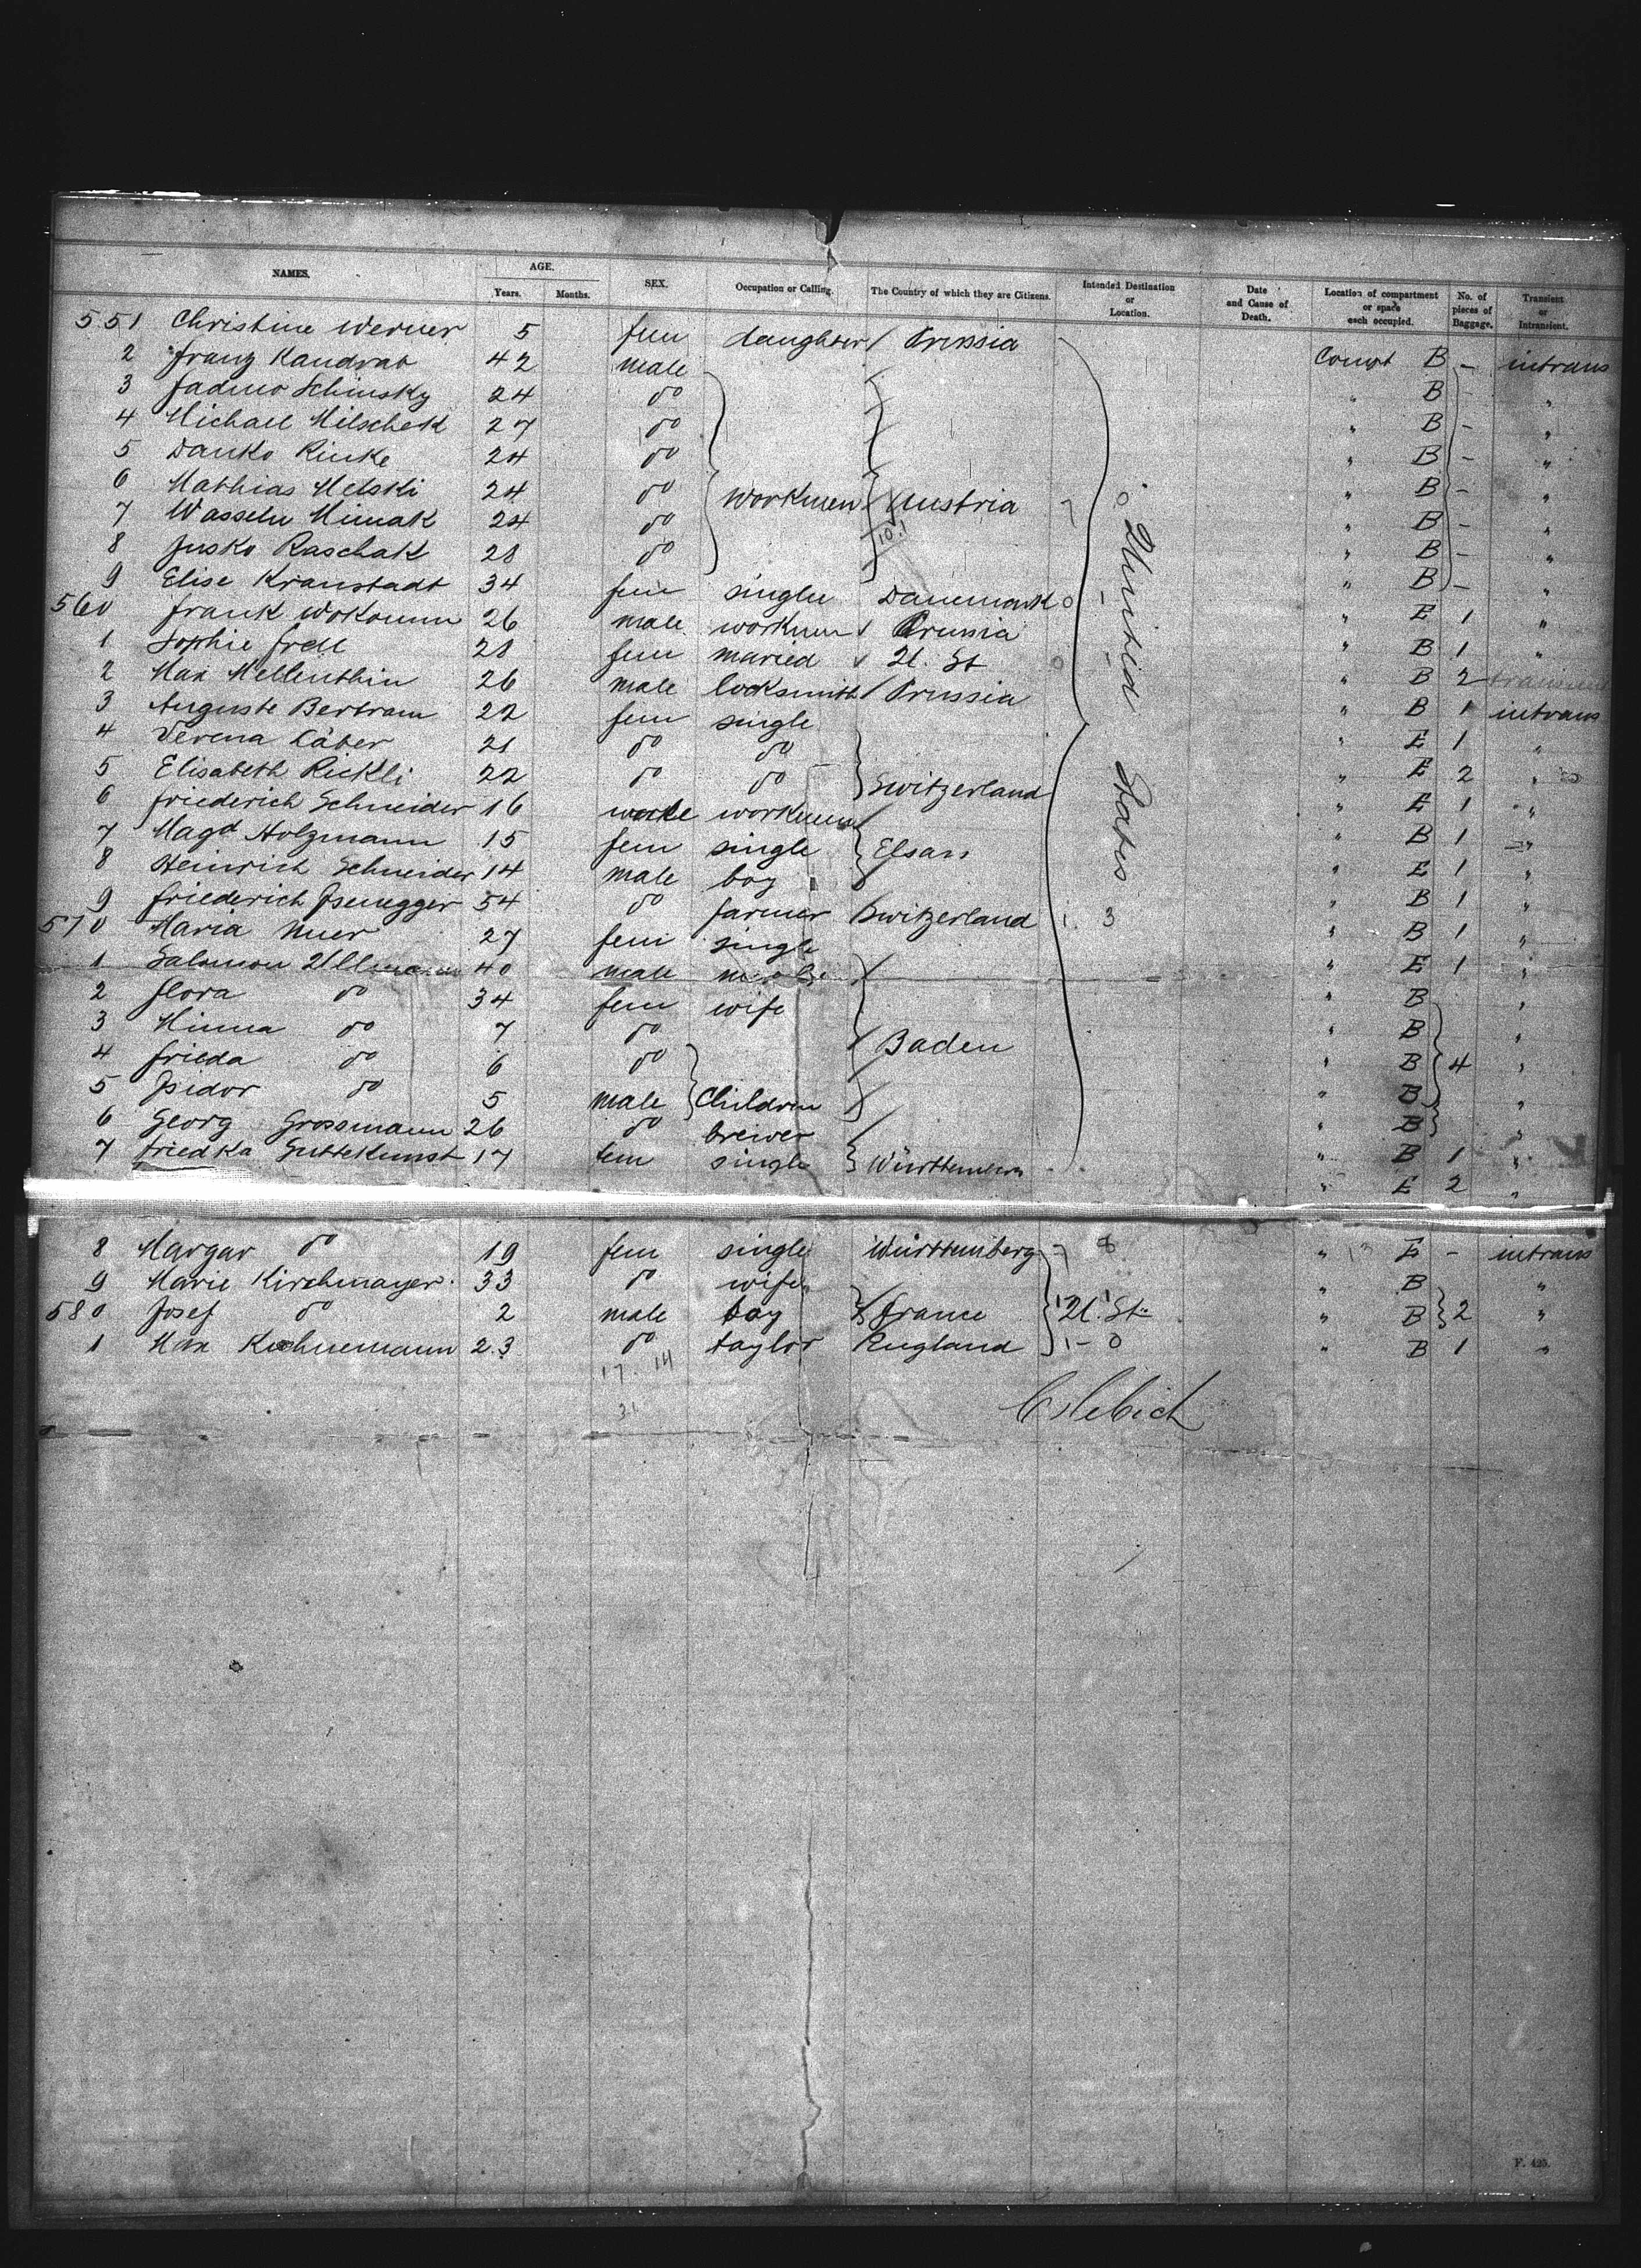 NAMES. AGE. Years. Months. SEX. Occupation or Calling. The Country of which they are Citizens. Intended Destination or Location. Date and Cause of Death. Location of compartment or space each occupied. No. of pieces of Baggage. Transient or Intransient.
551 Christine Werner 5 fem daughter Prussia Compt B - intrans
2 Franz Kandrat 42 male B - "
3 24 do " B - "
4 Michael Milschek 27 do " B - "
5 Danko Rinke 24 do " B - "
6 Mathias Melski 24 do workmen Austria " B - "
7 Wasseln Mimak 24 do " B - "
8 Jusko Raschak 28 do " B - "
9 Elise Kranstadt 34 fem single Danemark " E 1 "
560 Frank 26 male workmen Prussia " B 1 "
1 Sophie 28 fem maried U. St " B 2 transient
2 Max Mellenthin 26 male locksmith Prussia " B 1 intrans
3 Auguste Bertram 22 fem single " E 1 "
4 Verena Käber 21 do do " E 2 "
5 Elisabeth Rickli 22 do do Switzerland " E 1 "
6 Friederich Schneider 16 male workmen " B 1 "
7 Magd Holzmann 15 fem single Elsass " E 1 "
8 Heinrich Schneider 14 male boy " B 1 "
9 Friederich Isenegger 54 do farmer Switzerland " B 1 "
570 Maria 27 fem single " E 1 "
1 Salomon Ullmann 40 male " B "
2 Flora do 34 fem wife " B "
3 Minna do 7 do Baden " B 4 "
4 Frieda do 6 do " B "
5 Isidor do 5 male Children " B "
6 Georg Grossmann 26 do brewer " B 1 "
7 Friedka Guttekunst 17 fem single Württemberg " E 2 "
United States
8 Margar do 19 fem single Württemberg " E - intrans
9 Marie Kirchmayer 33 do wife " B "
580 Josef do 2 male boy France U. St. " B 2 "
1 Max Kuchnemann 23 do taylor England " B 1 "
17 14
31
F. 425.